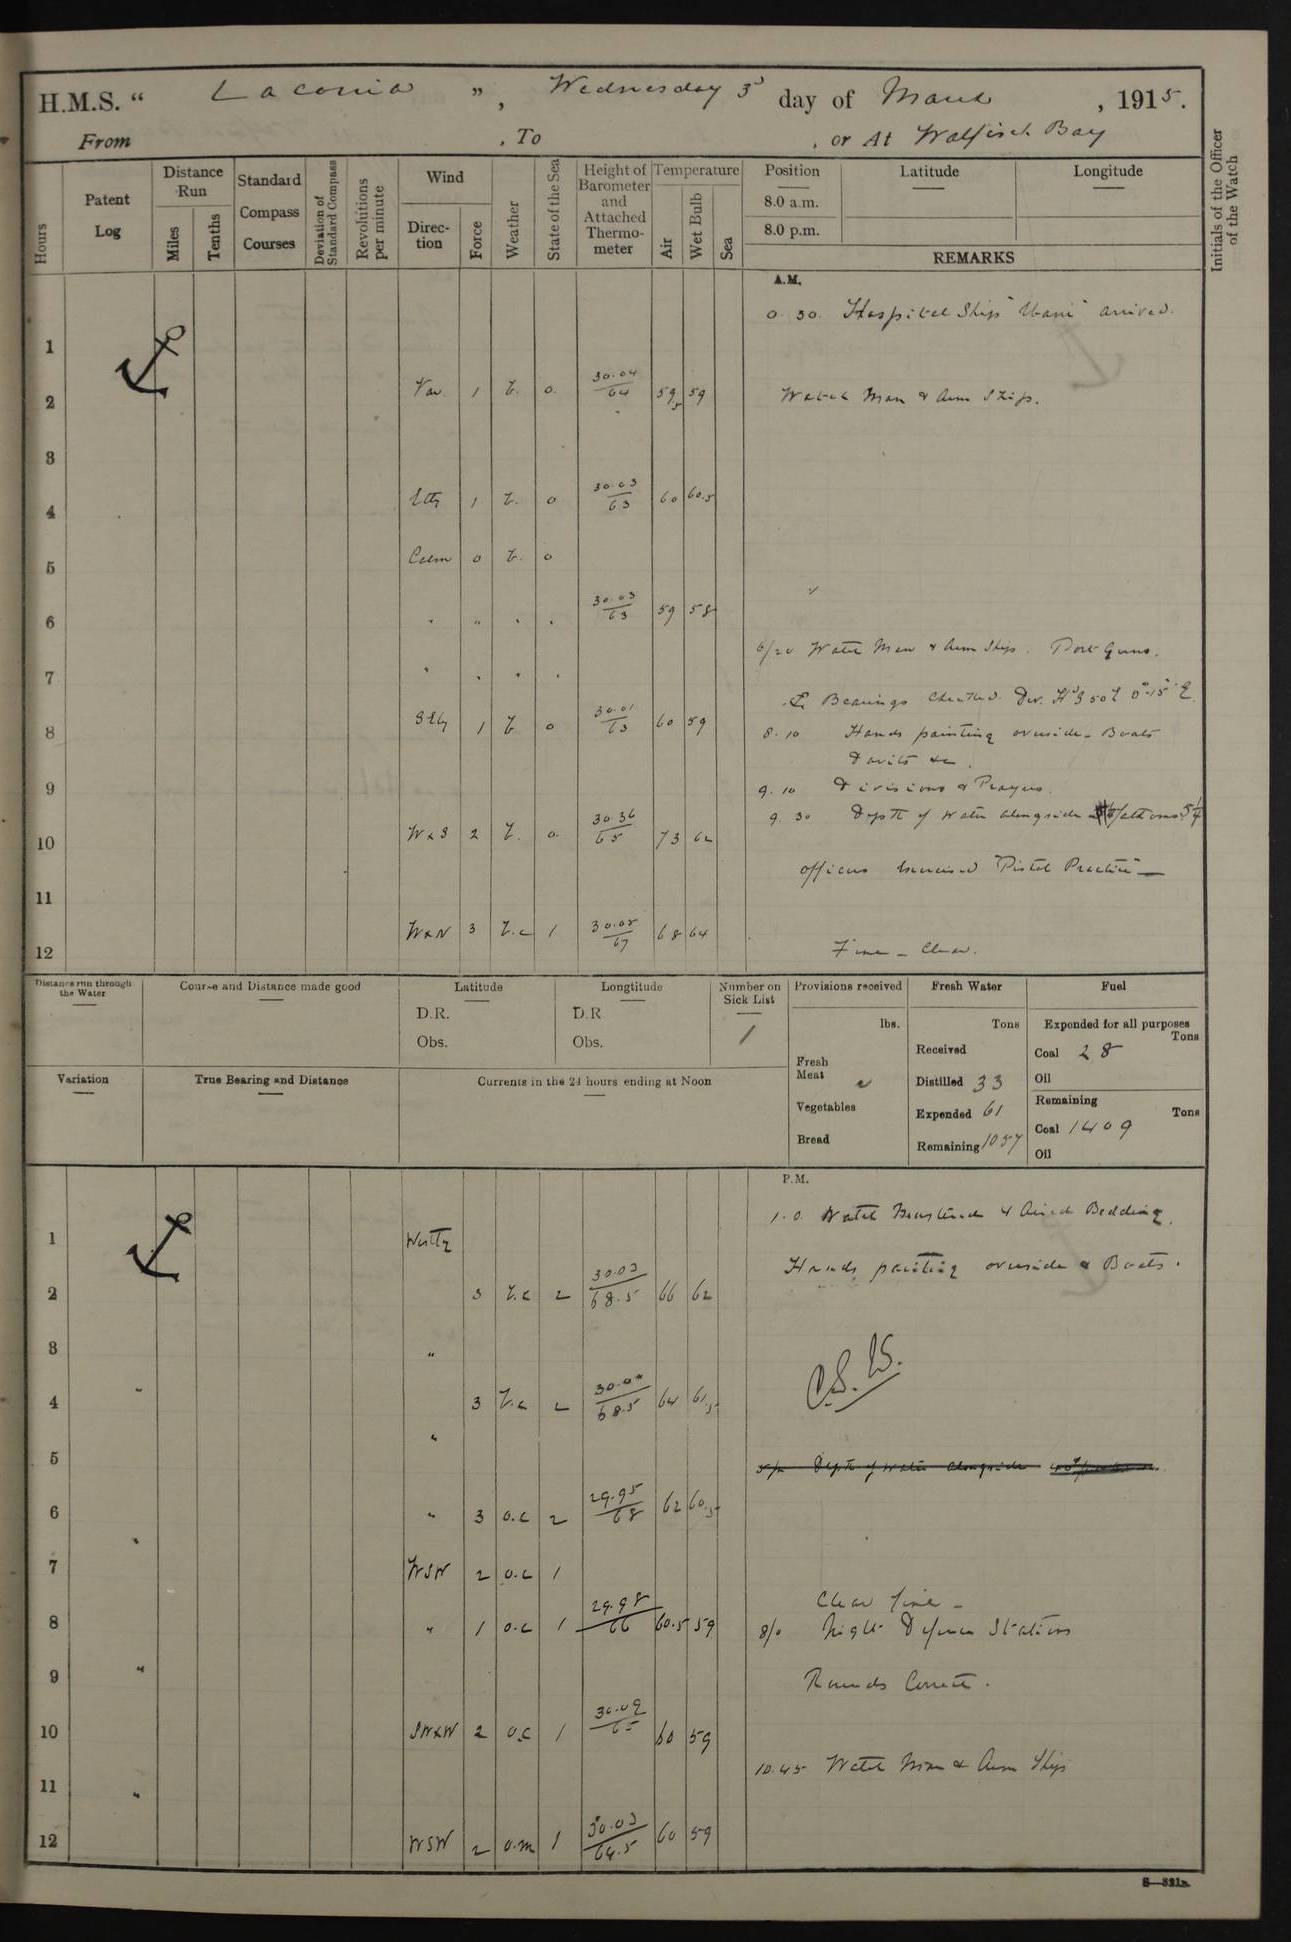 H.M.S. “ Laconia ”, Wednesday 3rd day of March, 1915.
From , To , or At Walfisch Bay
Hours
Patent Log
Distance Run
Miles
Tenths
Standard Compass Courses
Deviation of Standard Compass
Revolutions per minute
Wind
Direction
Force
Weather
State of the Sea
Height of Barometer and Attached Thermometer
Temperature
Air
Wet Bulb
Sea
Position
8.0 a.m.
8.0 p.m.
Latitude
Longitude
REMARKS
Initials of the Officer of the Watch
A.M.
0.30. Hospital Ship arrived.
1
2 Var. 1 b. 0. 30.04/64 59.5 59 Watch Man & Arm Ship.
3
4 1 b. 0 30.03/63 60 60.5
5 Calm 0 b. 0
6 " " " " 30.03/63 59 58
6/20 Watch Man & Arm Ship. Port Guns.
7 " " " "
Bearings Checked. Dev. 0°.15' E
8 1 b 0 30.01/63 60 59
8.10 Hands painting overside. Boats
Davits &c.
9
9.10 Divisions & Prayers.
9.30 Depth of water alongside fathoms 5¼
10 WxS 2 b. 0. 30.36/65 73 62
Officers Exercised "Pistol Practice"
11
12 WxN 3 b.c 1 30.05/67 68 64
Fine - Clear.
Distance run through the Water
Course and Distance made good
Latitude
D.R.
Obs.
Longtitude
D.R
Obs.
Number on Sick List
1
Provisions received
lbs.
Fresh Meat
Vegetables
Bread
Fresh Water
Tons
Received
Distilled 33
Expended 61
Remaining 1057
Fuel
Expended for all purposes
Tons
Coal 28
Oil
Remaining
Tons
Coal 1409
Oil
Variation
True Bearing and Distance
Currents in the 24 hours ending at Noon
P.M.
1.0. Watch Mustered & Aired Bedding.
1 Westly
Hands painting overside & Boats.
2 3 b.c 2 30.03/68.5 66 62
3 "
4 3 b.c 2 68.5 64 61.5
"
5 Depth of water alongside
6 " 3 o.c 2 29.95/68 62 60.5
7 WSW 2 o.c 1
Clear fine -
8 " 1 o.c 1 29.98/66 60.5 59 8/0 Night Defence Stations
9 Rounds Correct.
10 SWxW 2 o.c 1 30.09/65 60 59
10.45 Watch Man & Arm Ship
11
12 WSW 2 o.m 1 30.03/64.5 60 59